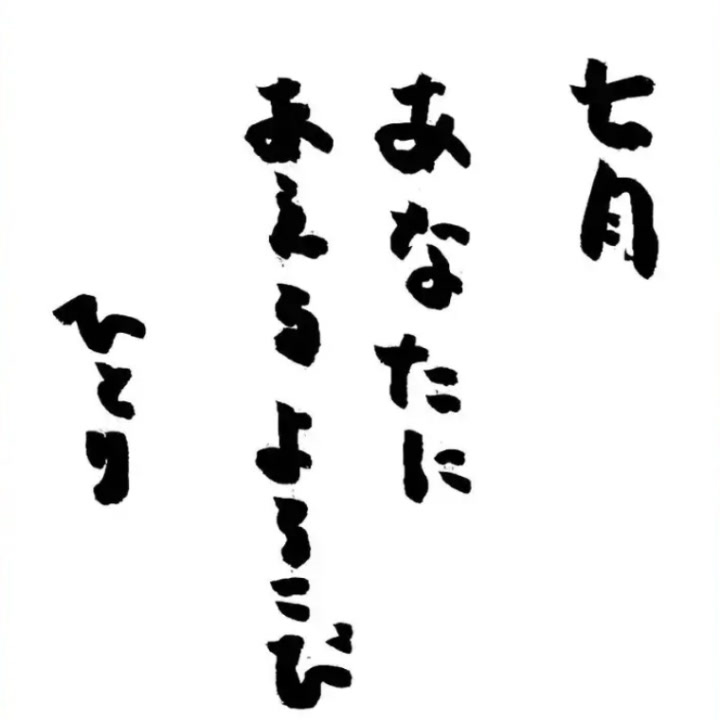 七月
あなたに
あえるよろこび
ひとり